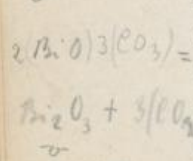 2(BiO)3(CO3)=
Bi2O3 + 3(CO